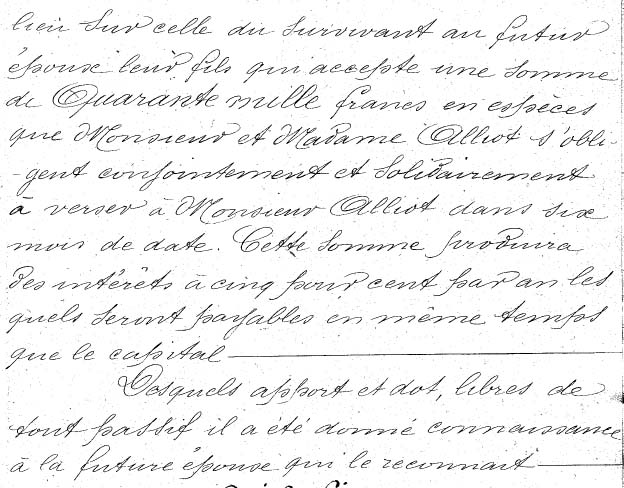 lieu sur celle du survivant au futur
époux leur fils qui accepte une somme
de Quarante mille francs en espèces
que Monsieur et Madame Alliot s'obli-
-gent conjointement et solidairement
à verser à Monsieur Alliot dans six
mois de date. Cette somme produira
des intérêts à cinq pour cent par an les
quels seront payables en même temps
que le capital
Desquels apport et dot, libres de
tout passif il a été donné connaissance
à la future épouse qui le reconnait